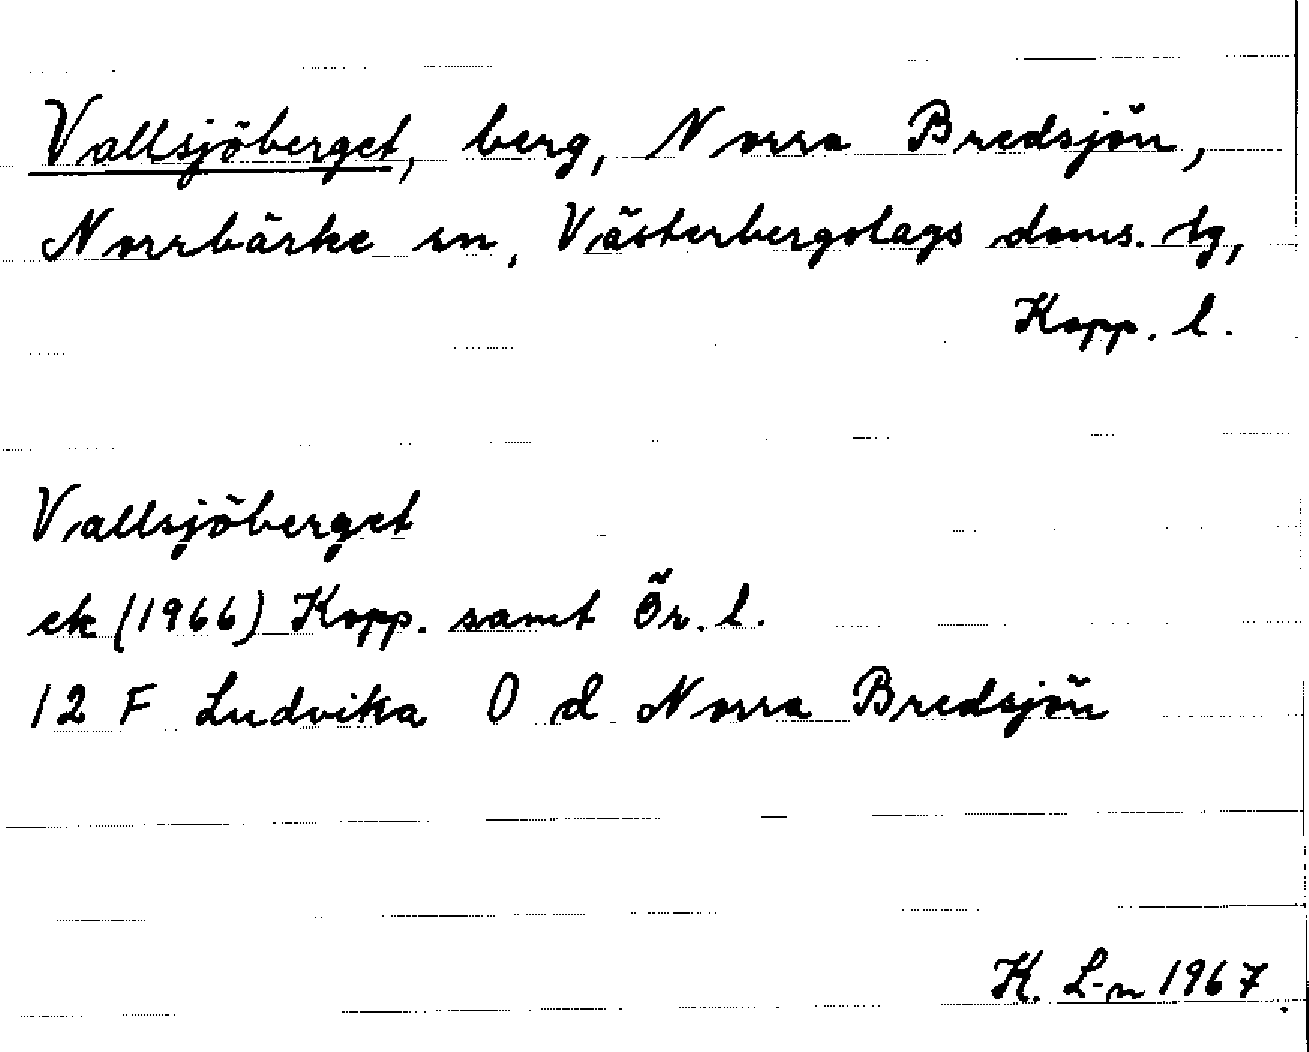 Vallsjöberget, berg, Norra Bredsjön,
Norrbärke sn, Västerbergslags doms. tg,
Kopp. l.
Vallsjöberget
ek (1966) Kopp. samt Ör. l.
12 F Ludvika O d Norra Bredsjön
K. L-n 1967.